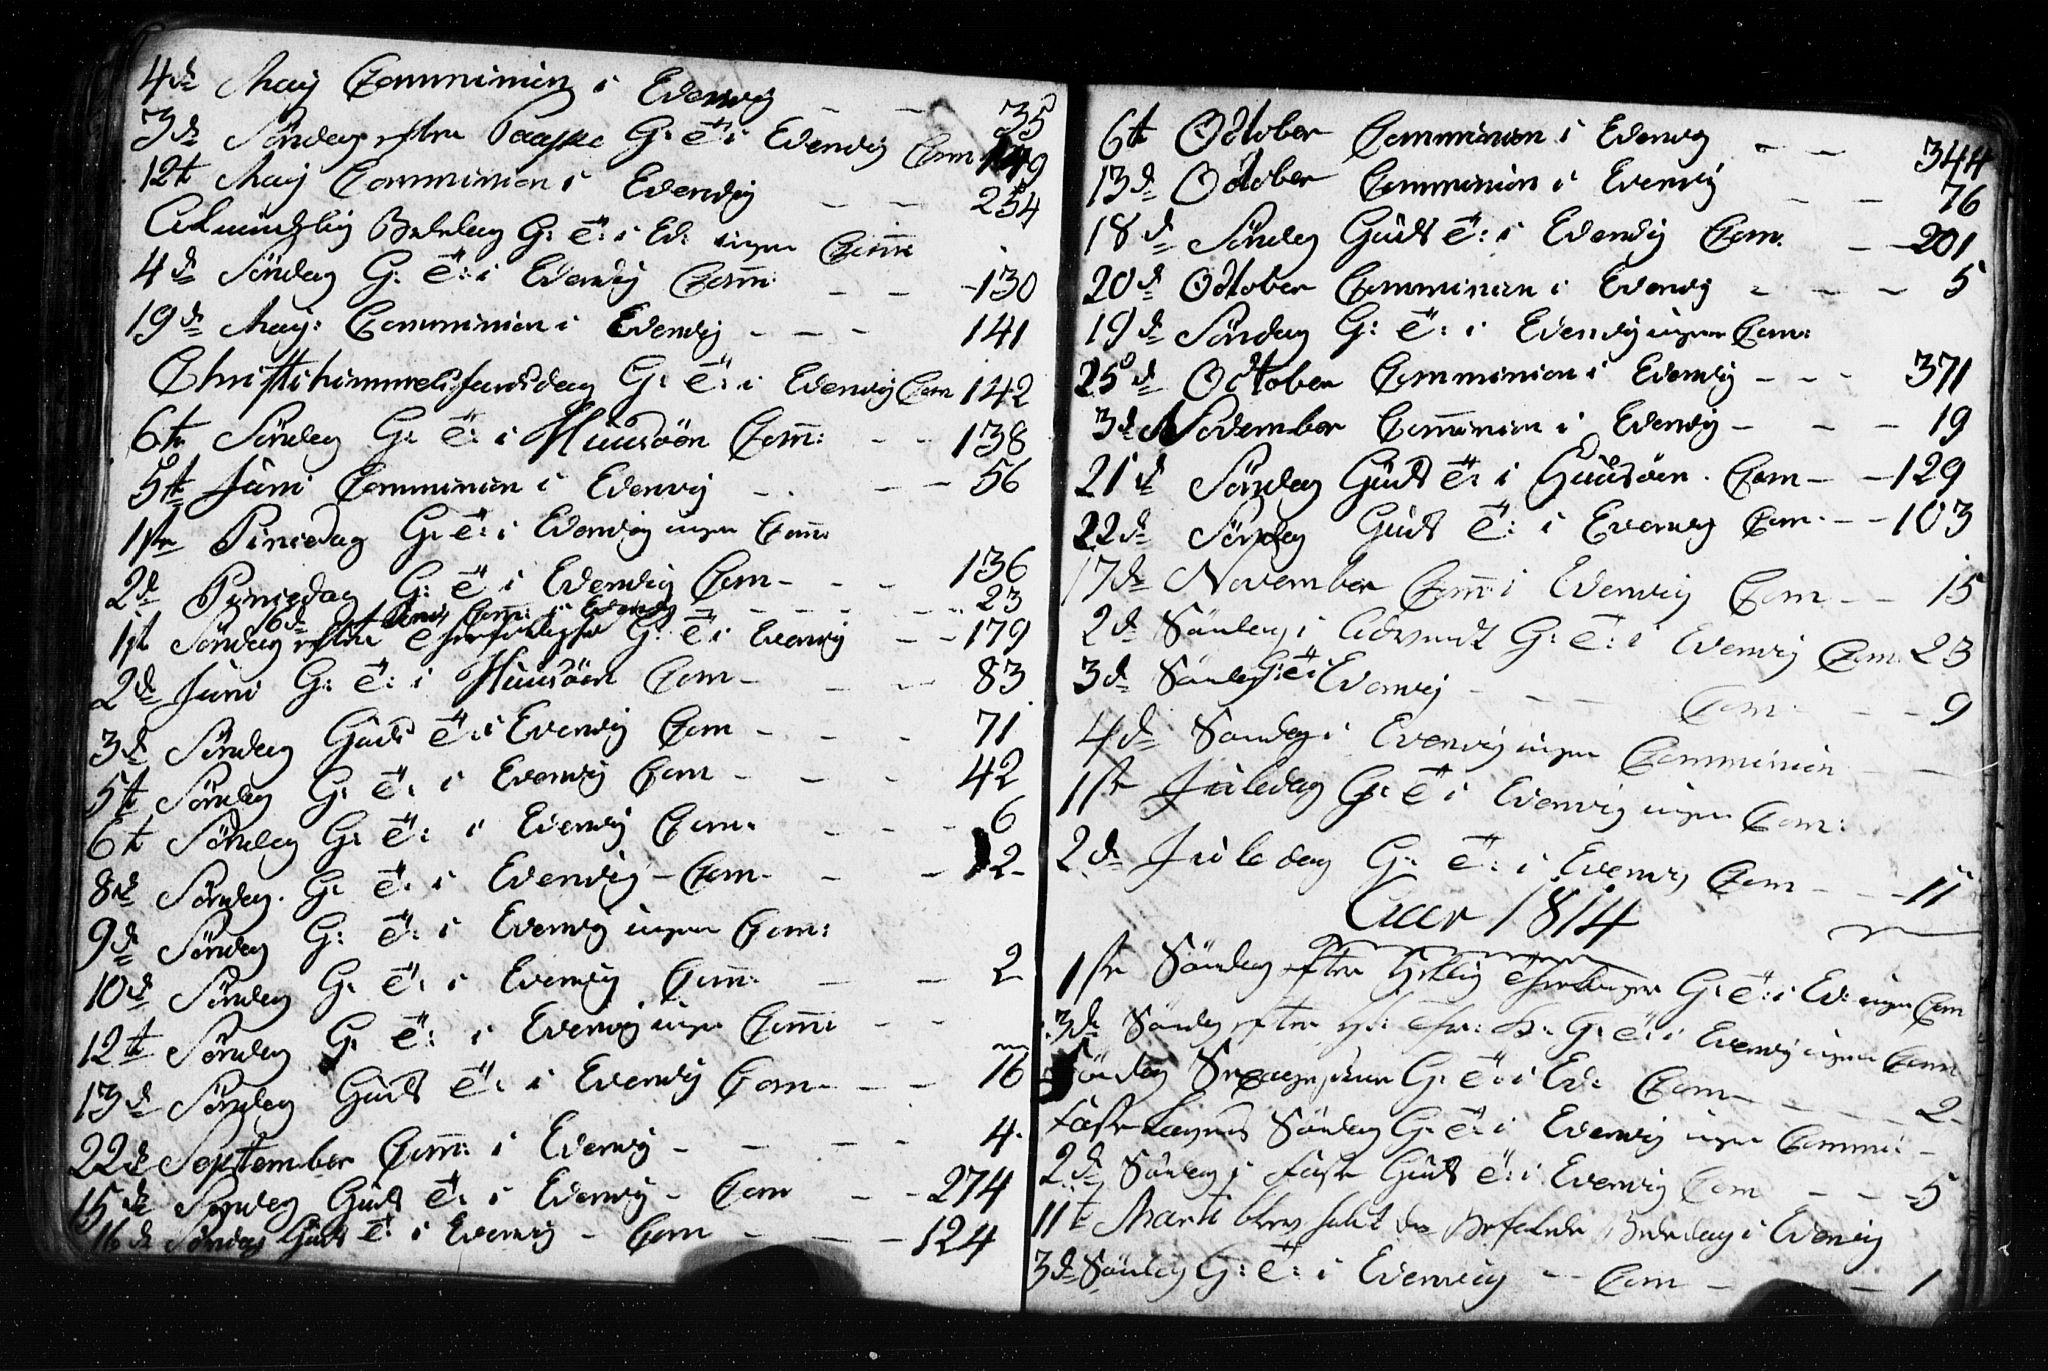 4de Maij Communion i Evenvig - - 35
3de Søndag efter Paaske G: ë: i Evenvig Com 179
12te Maij Communion i Evenvig - - 254
Almindelig Bededag G: ë: i Ev: ingen Com̅:
4de Søndag G: ë: i Evenvig Com̅: - - 130
19de Maij: Communion i Evenvig - - - 141
Christi himmelsfartsdag G: ë: i Evenvig Com 142
6te Søndag G: ë: i Huusøen Com̅: - - 138
5te Juni Communion i Evenvig - - - 56
1ste Pinsedag G: ë: i Evenvig ingen Com̅:
2den Pinsedag G: ë: i Evenvig Com - - - 136
16de Juni Com̅: i Evenvig - - - - 23
1ste Søndag efter G: ë: i Evenvig - - 179
2de Juni G: ë: i Huusøen Com - - - 83
3de Søndag Guds ë: i Evenvig Com - - - 71
5te Søndag G: ë: i Evenvig Com - - - 42
6te Søndag G: ë: i Evenvig Com: - - - 6
8de Søndag. G: ë: i Evenvig - Com - - - 2
9de Søndag G: ë: i Evenvig ingen Com:
10de Søndag G: ë: i Evenvig Com̅: - - 2
12te Søndag G: ë: i Evenvig ingen Com̅: - -
13de Søndag Guds ë: i Evenvig Com - - - 76
22de September Com̅: i Evenvig - - - - 4
15de Søndag Guds ë: i Evenvig - Com - - 274
16de Søndag Guds ë: i Evenvig - Com - - - 124
6te October Communion i Evenvig - - 344
13de October Communion i Evenvig - - 76
18de Søndag Guds ë: i Evenvig Com: - - 201
20de October Communion i Evenvig - - - 5
19de Søndag G: ë: i Evenvig ingen Com:
25de October Communion i Evenvig - - - 371
3de November Com̅union i Evenvig - - - 19
21de Søndag Guds ë: i Huusøen. Com - - 129
22de Søndag Guds ë: i Evenvig Com - - 103
17de November Com̅: i Evenvig Com - - 15
2de Søndag i Advendt G: ë: i Evenvig Com 23
3de Søndag G: ë: i Evenvig - - - Com - - 9
4de Søndag i Evenvig ingen Communion - -
1ste Juledag G: ë: i Evenvig ingen Com:
2de Juledag G: ë: i Evenvig Com - - - 11
Aar 1814
1ste Søndag efter G: ë: i Ev: ingen Com
3de Søndag efter G: ë: i Evenvig ingen Com̅
Søndag G: ë: i Ev: Com - - - - 2
Fastelagns Søndag G: ë: i Evenvig ingen Commu: -
2de Søndag i Faste Guds ë: i Evenvig Com - - - 5
11te Marti blev holdt den Befalede Bededag i Evenvig
3de Søndag G: ë: i Evenvig - - Com - - - 1